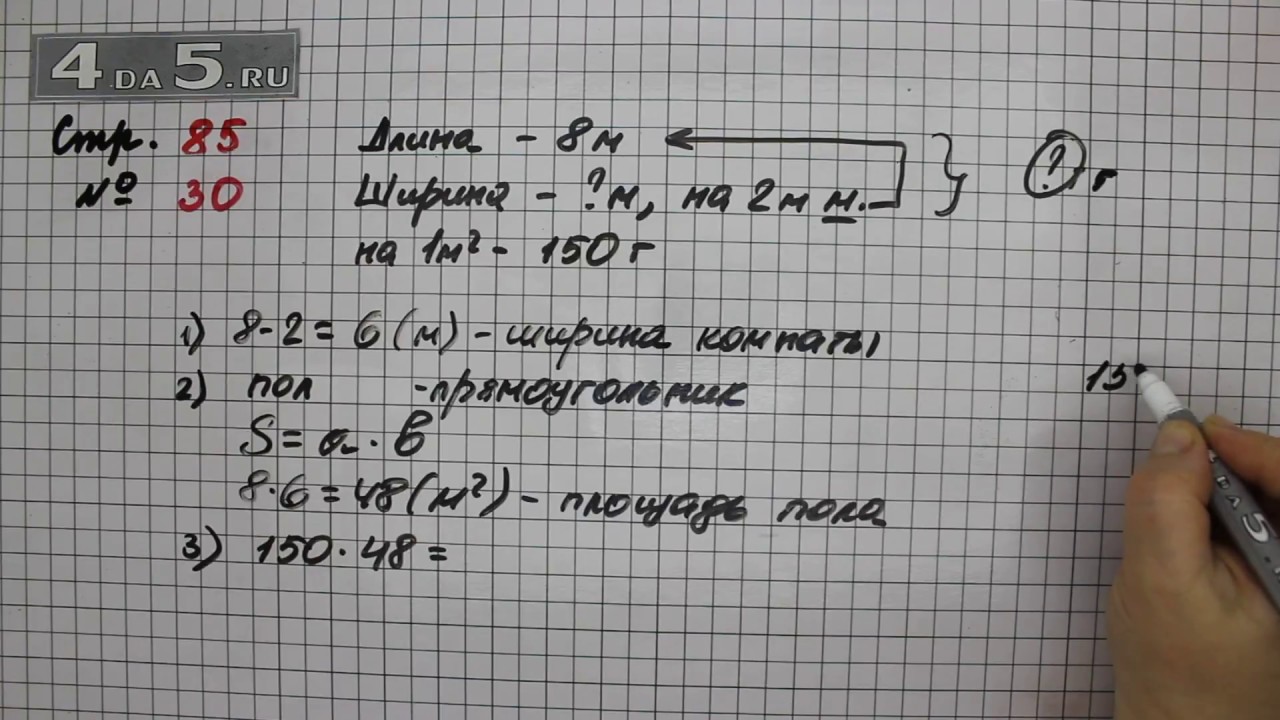 4DA5.RU
Стр. 85
№ 30
Длина - 8м
Ширина - ?м, на 2м м.
? г
на 1м² - 150 г
1) 8-2=6(м) - ширина комнаты
2) пол - прямоугольник
S = a · b
8·6=48(м²) - площадь пола
3) 150·48=
15